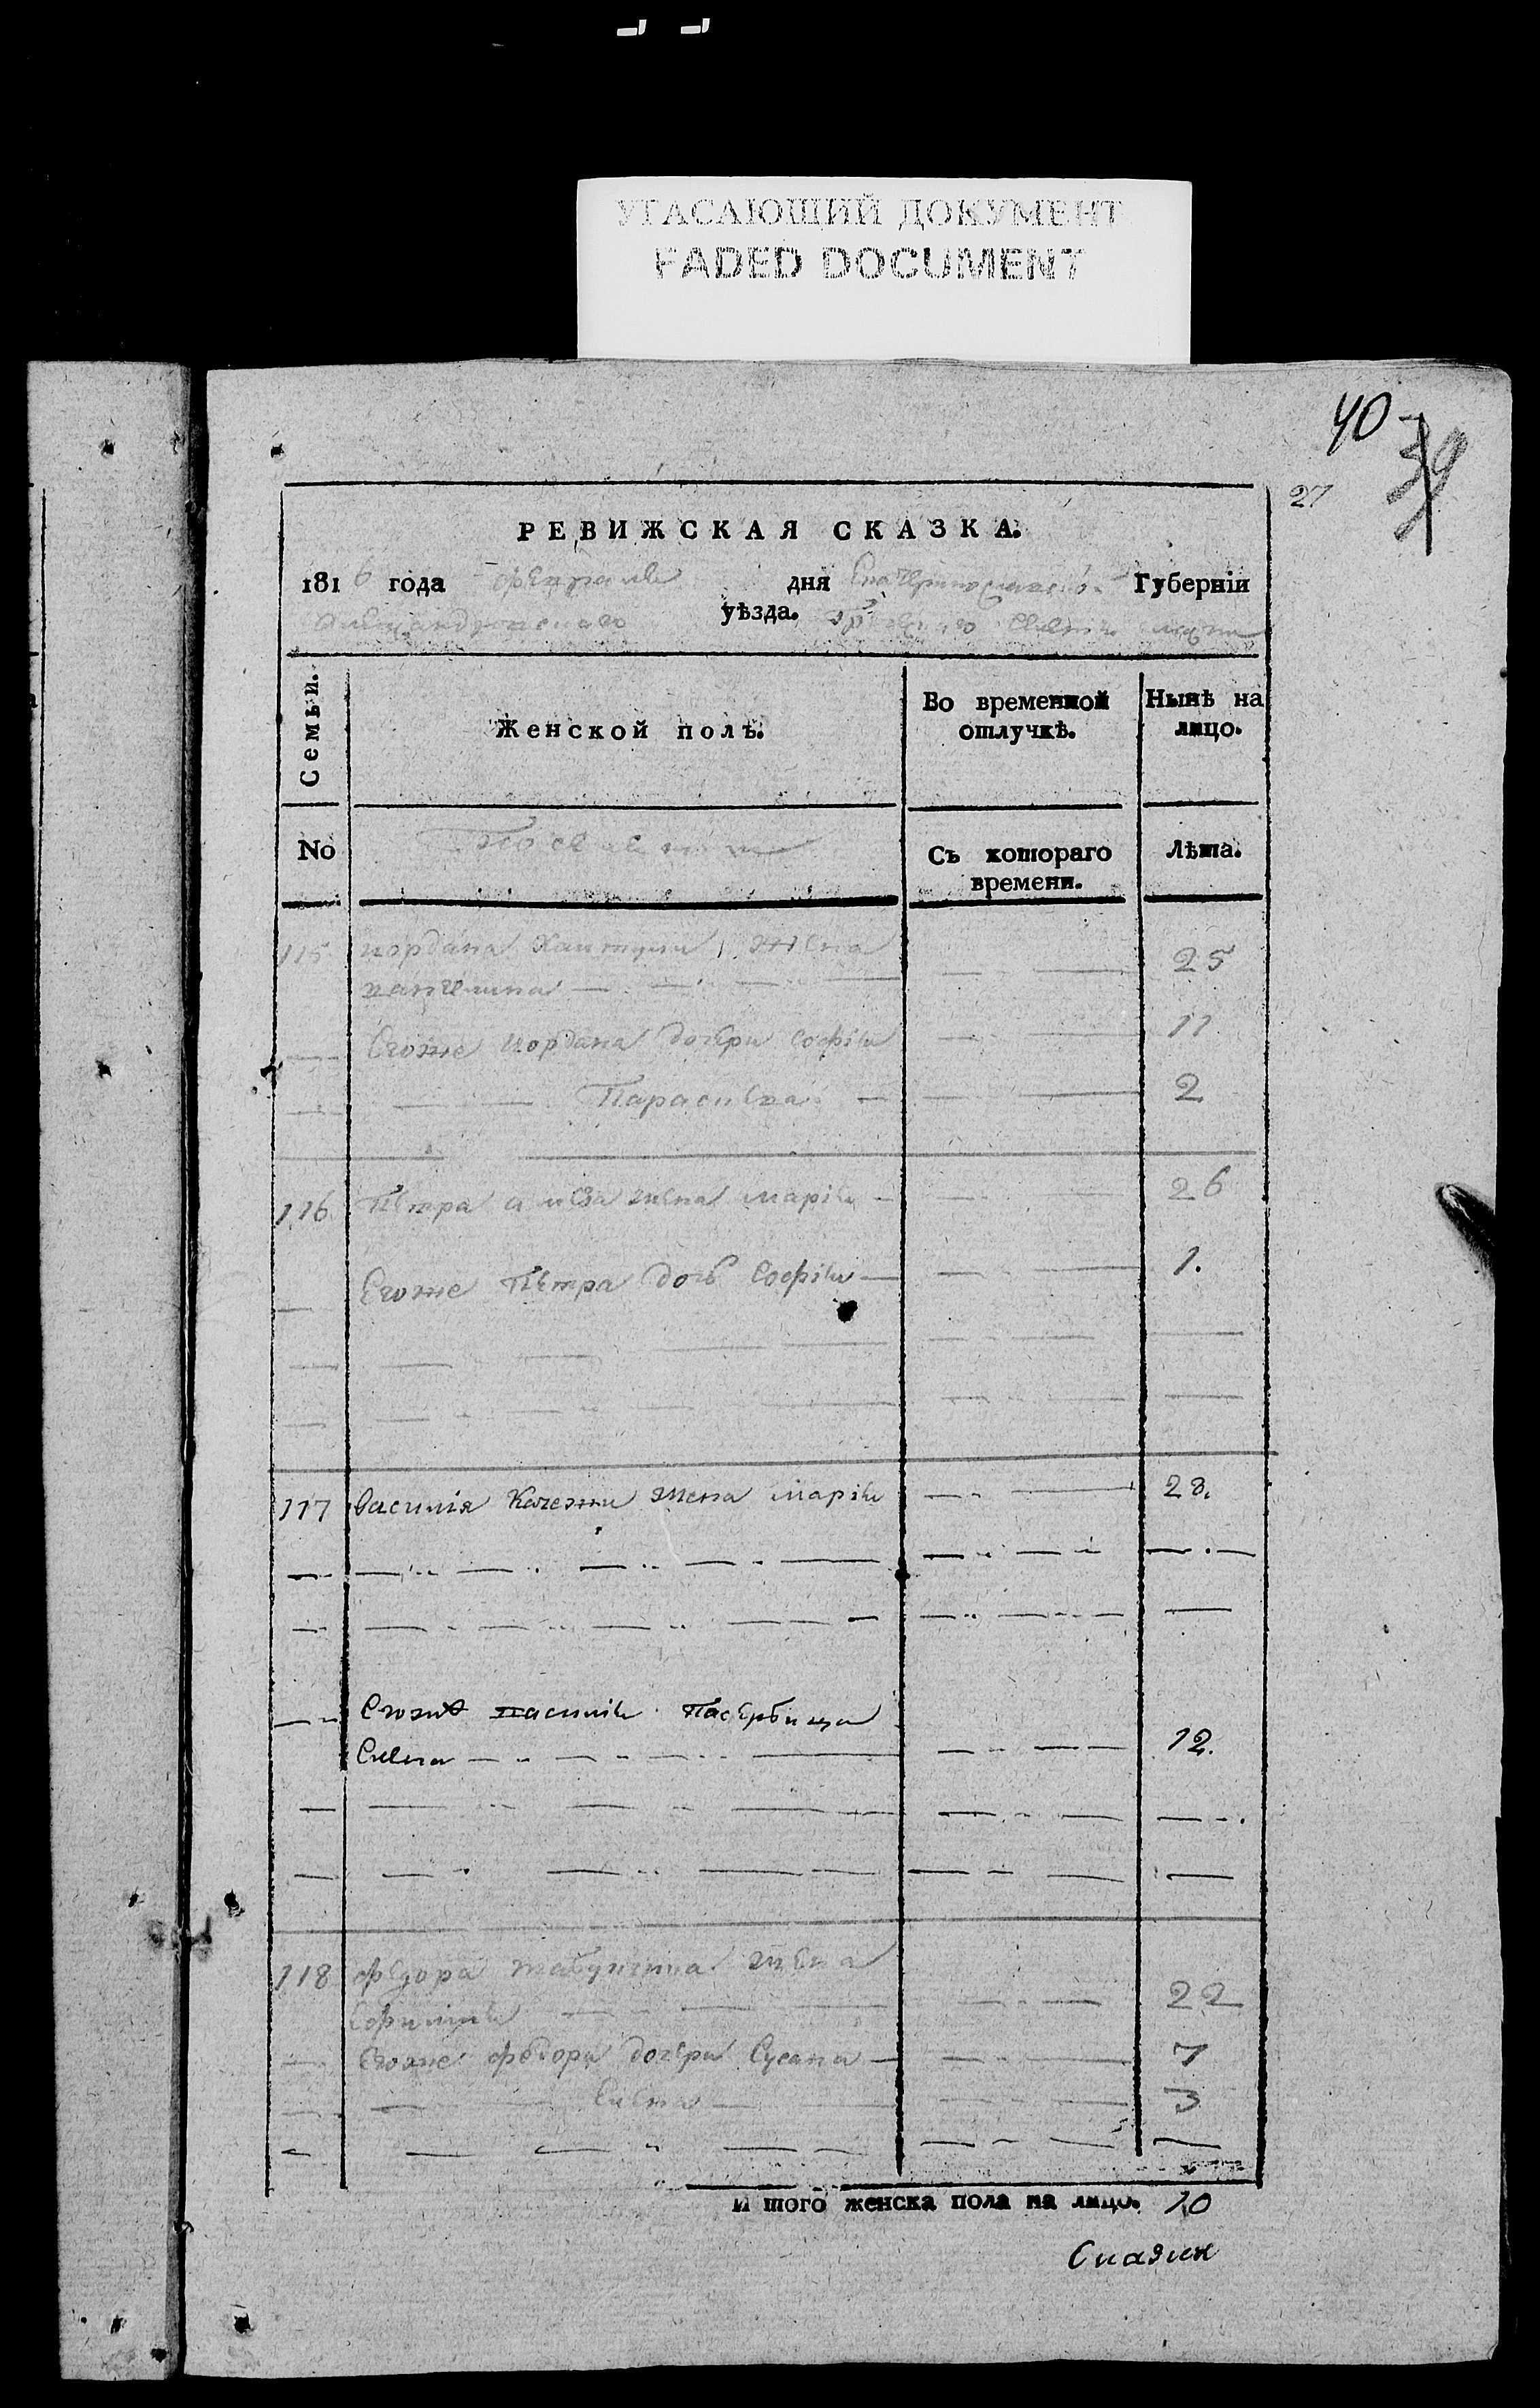 УГАСАЮЩИЙ ДОКУМЕНТ
FADED DOCUMENT
40
39
27
РЕВИЖСКАЯ СКАЗКА.
1816 года февраля дня Екатеринославской Губерніи
Александровскаго уѣзда.
Семьи.
Женской полъ.
Во временной отлучкѣ.
Нынѣ на лицо.
No
Съ котораго времени.
Лѣта.
115 иордана жена
25
Егоже иордана дочери софія 11
Парасковa 2
116 Петра жена марія 26
Егоже Петра дочь Софія 1.
117 василія жена марія 28.
Егоже василія Пасербица
Елена 12.
118 федора жена
Ефимія 22
Егоже федора дочери Сусана 7
Елена 3
И того женска пола на лицо. 10